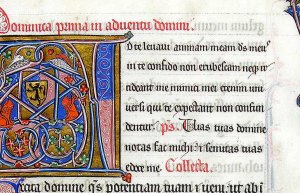 Dominica prima in adventu domini.
Ad te levavi animam meam ds meus
in te confido non erubescam neque
irrideant me inimici mei etenim uni
versi qui te expectant non confun
dentur. ps. Vias tuas domine
notas fac michi semitas tuas
edoce me. Collecta.
Excita domine qs potentiam tuam